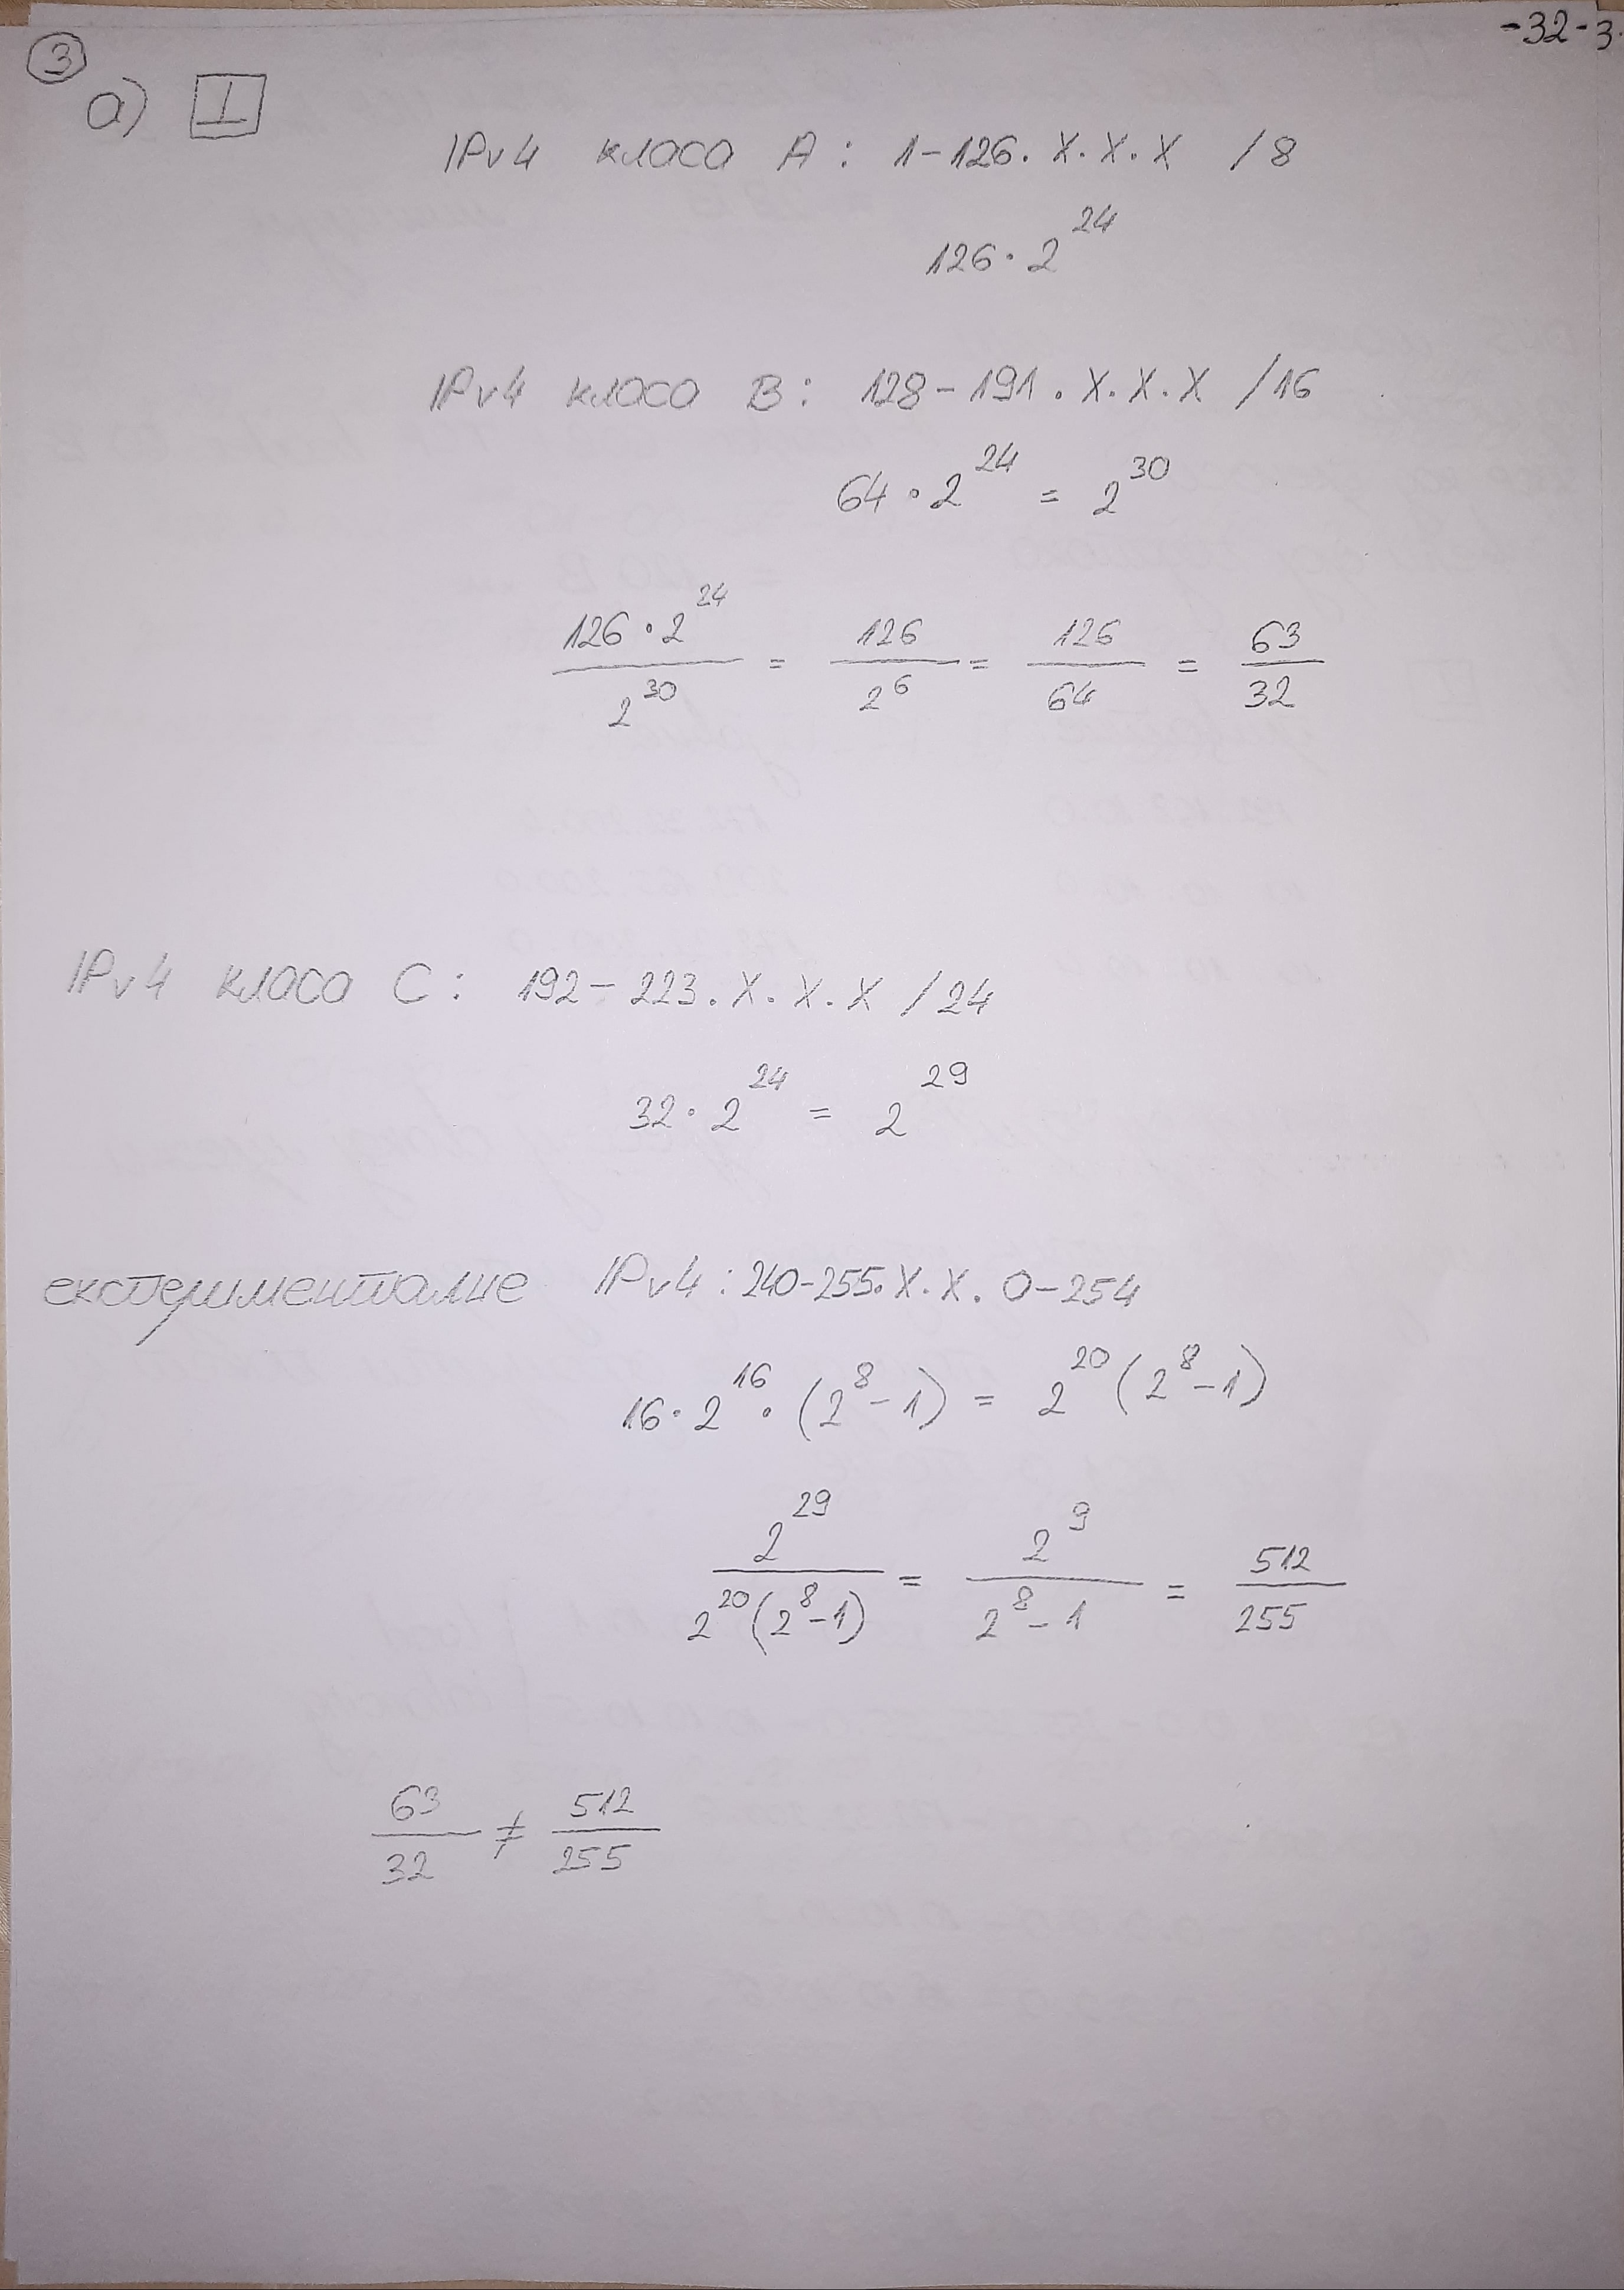 -32-3.
3
a) I
IPv4 класа A: 1-126. X. X. X /8
126 · 2^24
IPv4 класа B: 128-191. X. X. X /16
64 · 2^24 = 2^30
126 · 2^24 / 2^30 = 126 / 2^6 = 126 / 64 = 63 / 32
IPv4 класа C: 192-223. X. X. X /24
32 · 2^24 = 2^29
експерименталне IPv4: 240-255. X. X. 0-254
16 · 2^16 · (2^8 - 1) = 2^20 (2^8 - 1)
2^29 / 2^20 (2^8 - 1) = 2^9 / 2^8 - 1 = 512 / 255
63 / 32 ≠ 512 / 255